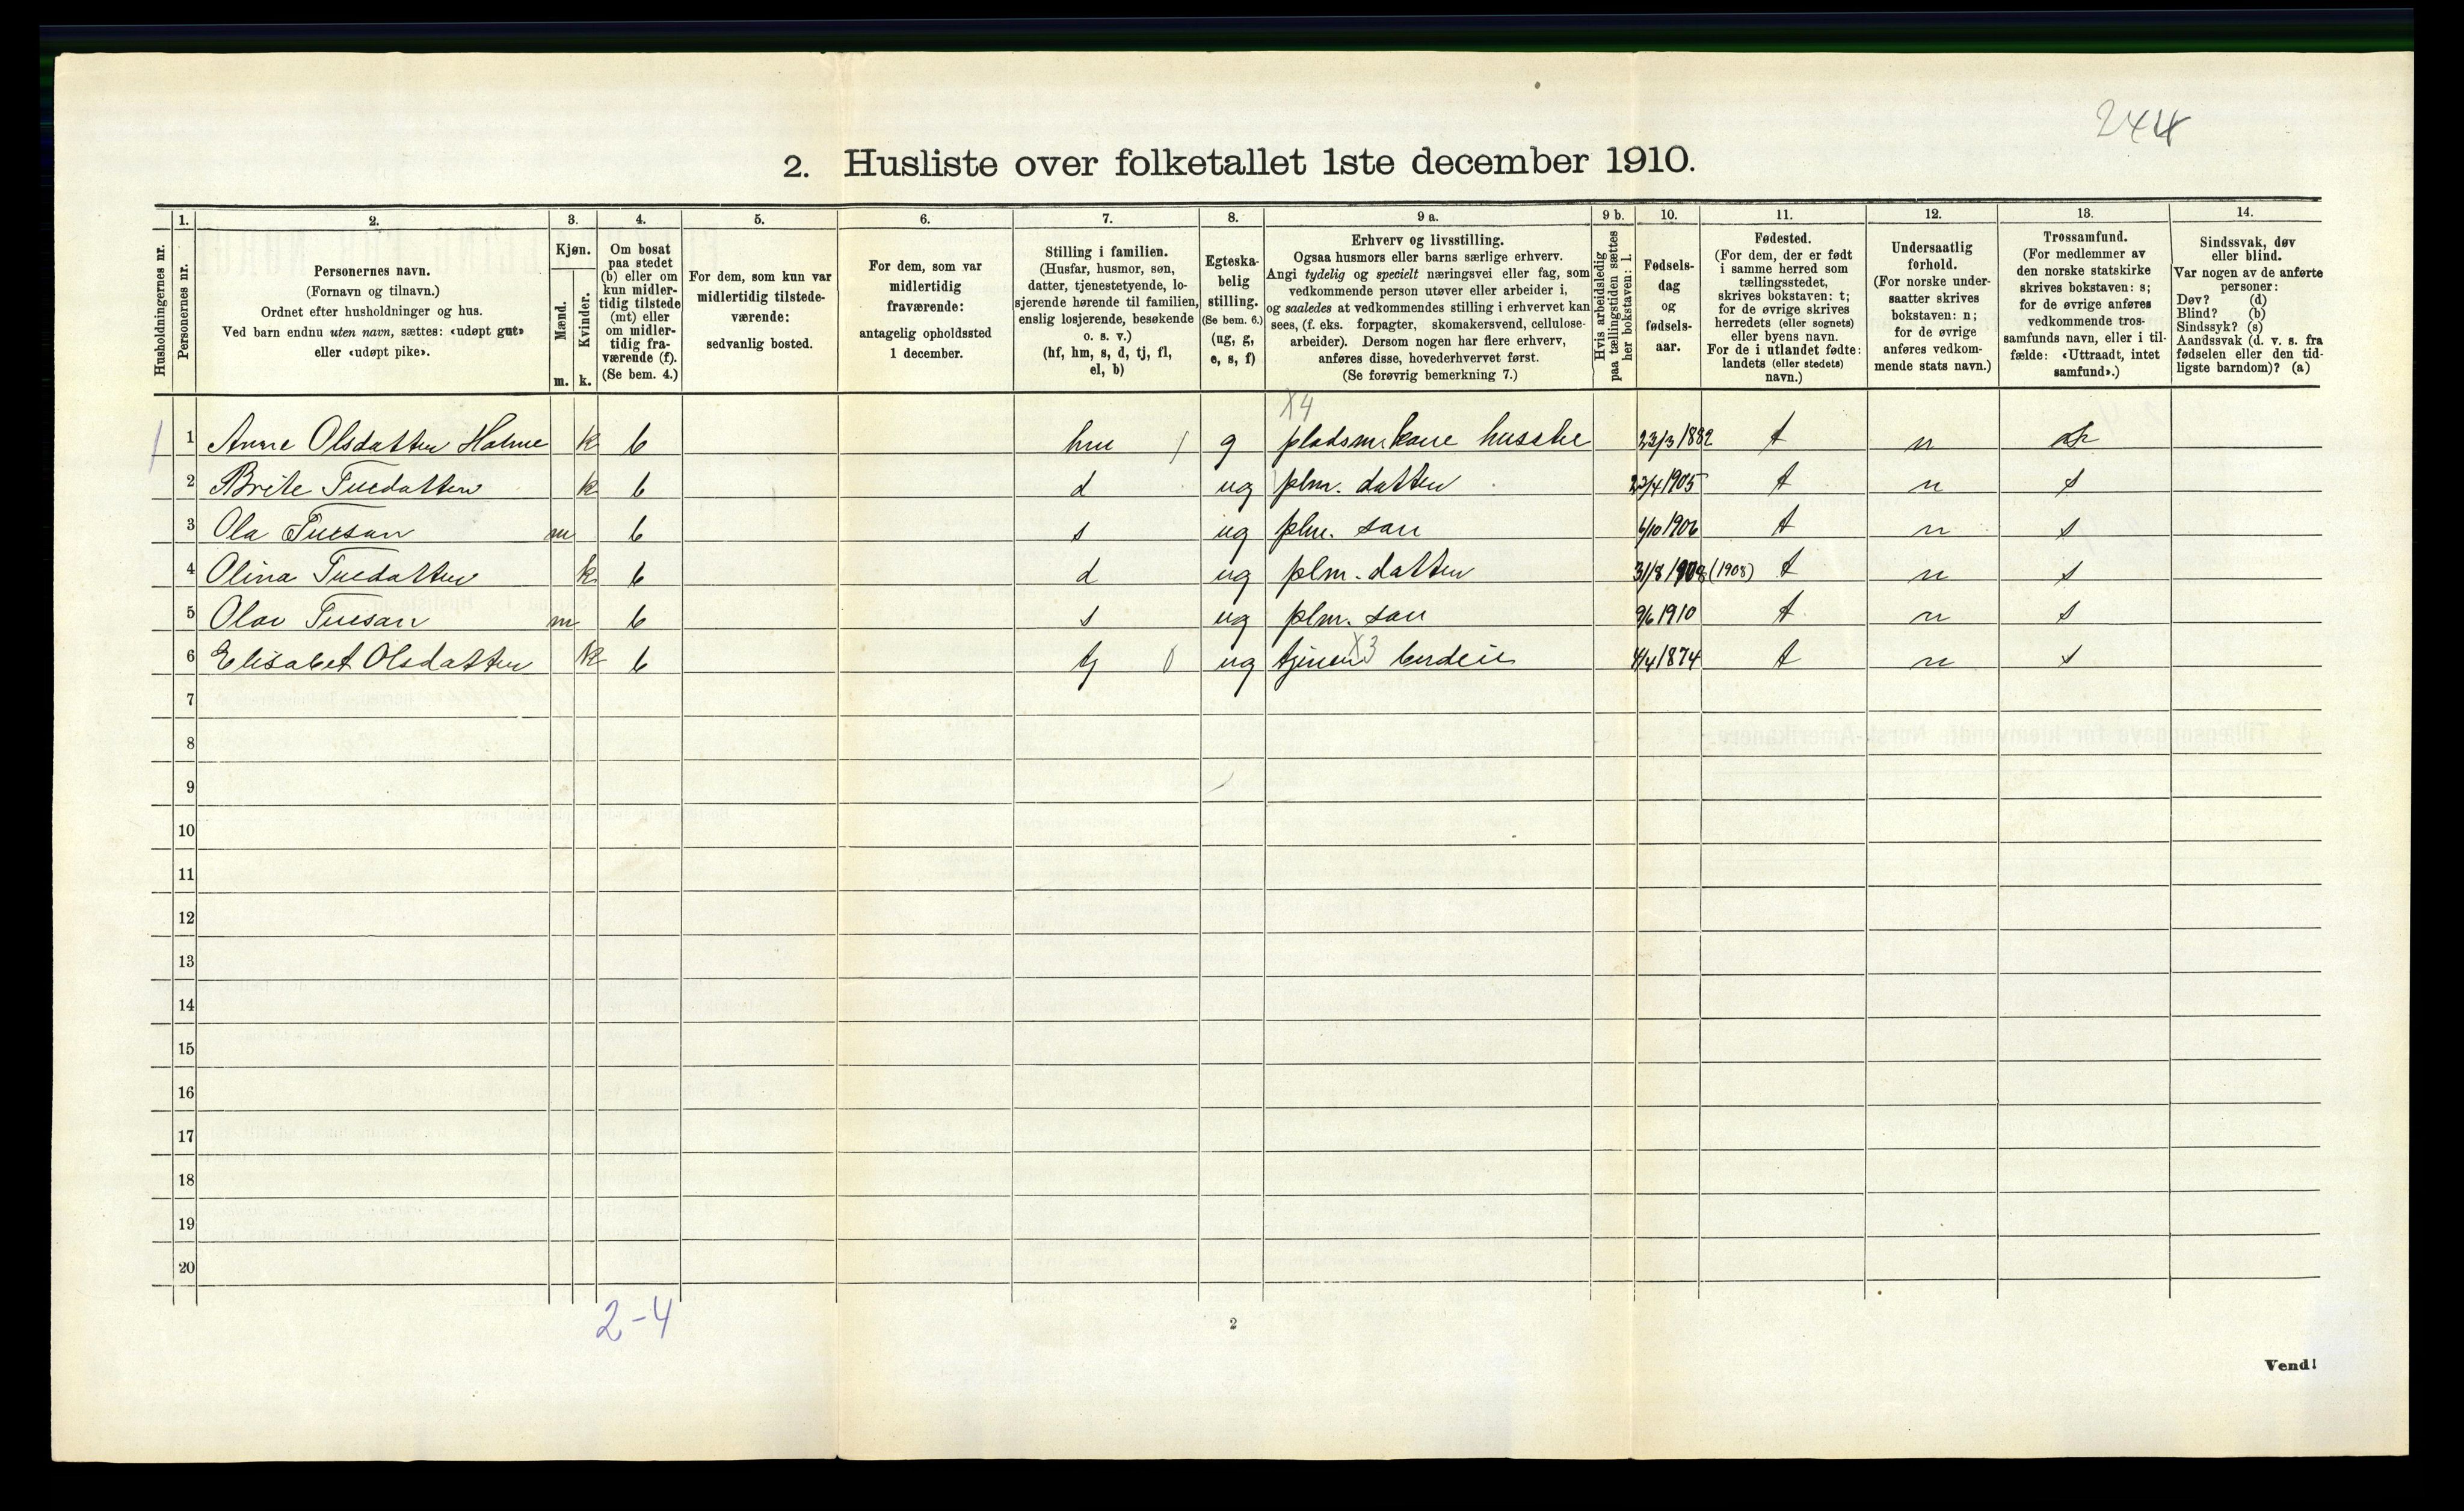 244
2. Husliste over folketallet 1ste december 1910.
Husholdningernes nr.
1.
Personernes nr.
2.
Personernes navn.
(Fornavn og tilnavn.)
Ordnet efter husholdninger og hus.
Ved barn endnu uten navn, sættes: «udøpt gut»
eller «udøpt pike».
3.
Kjøn.
Mænd.
m.
Kvinder.
k.
4.
Om bosat
paa stedet
(b) eller om
kun midler-
tidig tilstede
(mt) eller
om midler-
tidig fra-
værende (f).
(Se bem. 4.)
5.
For dem, som kun var
midlertidig tilstede-
værende:
sedvanlig bosted.
6.
For dem, som var
midlertidig
fraværende:
antagelig opholdssted
1 december.
7.
Stilling i familien.
(Husfar, husmor, søn,
datter, tjenestetyende, lo-
sjerende hørende til familien,
enslig losjerende, besøkende
o. s. v.)
(hf, hm, s, d, tj, fl,
el, b)
8.
Egteska-
belig
stilling.
(Se bem. 6.)
(ug, g,
e, s, f)
9 a.
Erhverv og livsstilling.
Ogsaa husmors eller barns særlige erhverv.
Angi tydelig og specielt næringsvei eller fag, som
vedkommende person utøver eller arbeider i,
og saaledes at vedkommendes stilling i erhvervet kan
sees, (f. eks. forpagter, skomakersvend, cellulose-
arbeider). Dersom nogen har flere erhverv,
anføres disse, hovederhvervet først.
(Se forøvrig bemerkning 7.)
9 b.
Hvis arbeidsledig
paa tællingstiden sættes
her bokstaven: l.
10.
Fødsels-
dag
og
fødsels-
aar.
11.
Fødested.
(For dem, der er født
i samme herred som
tællingsstedet,
skrives bokstaven: t;
for de øvrige skrives
herredets (eller sognets)
eller byens navn.
For de i utlandet fødte:
landets (eller stedets)
navn.)
12.
Undersaatlig
forhold.
(For norske under-
saatter skrives
bokstaven: n;
for de øvrige
anføres vedkom-
mende stats navn.)
13.
Trossamfund.
(For medlemmer av
den norske statskirke
skrives bokstaven: s;
for de øvrige anføres
vedkommende tros-
samfunds navn, eller i til-
fælde: «Uttraadt, intet
samfund».)
14.
Sindssvak, døv
eller blind.
Var nogen av de anførte
personer:
Døv? (d)
Blind? (b)
Sindssyk? (s)
Aandssvak (d. v. s. fra
fødselen eller den tid-
ligste barndom)? (a)
X4
1 1 Anne Olsdatter k b g pladsm. kone 23/3 1882 t n
2 Brite Tuedatter k b d ug plm. datter 23/4 1905 t n s
3 Ola Tueson m b s ug plm. søn 6/10 1906 t n s
4 Olina Tuedatter k b d ug plm. datter 31/8 1908 (1908) t n s
5 Olav Tueson m b s ug plm. søn 9/6 1910 t n s
6 Elisabet Olsdatter k b tj 0 ug X3 4/4 1874 t n s
7
8
9
10
11
12
13
14
15
16
17
18
19
20
2-4
2
Vend!